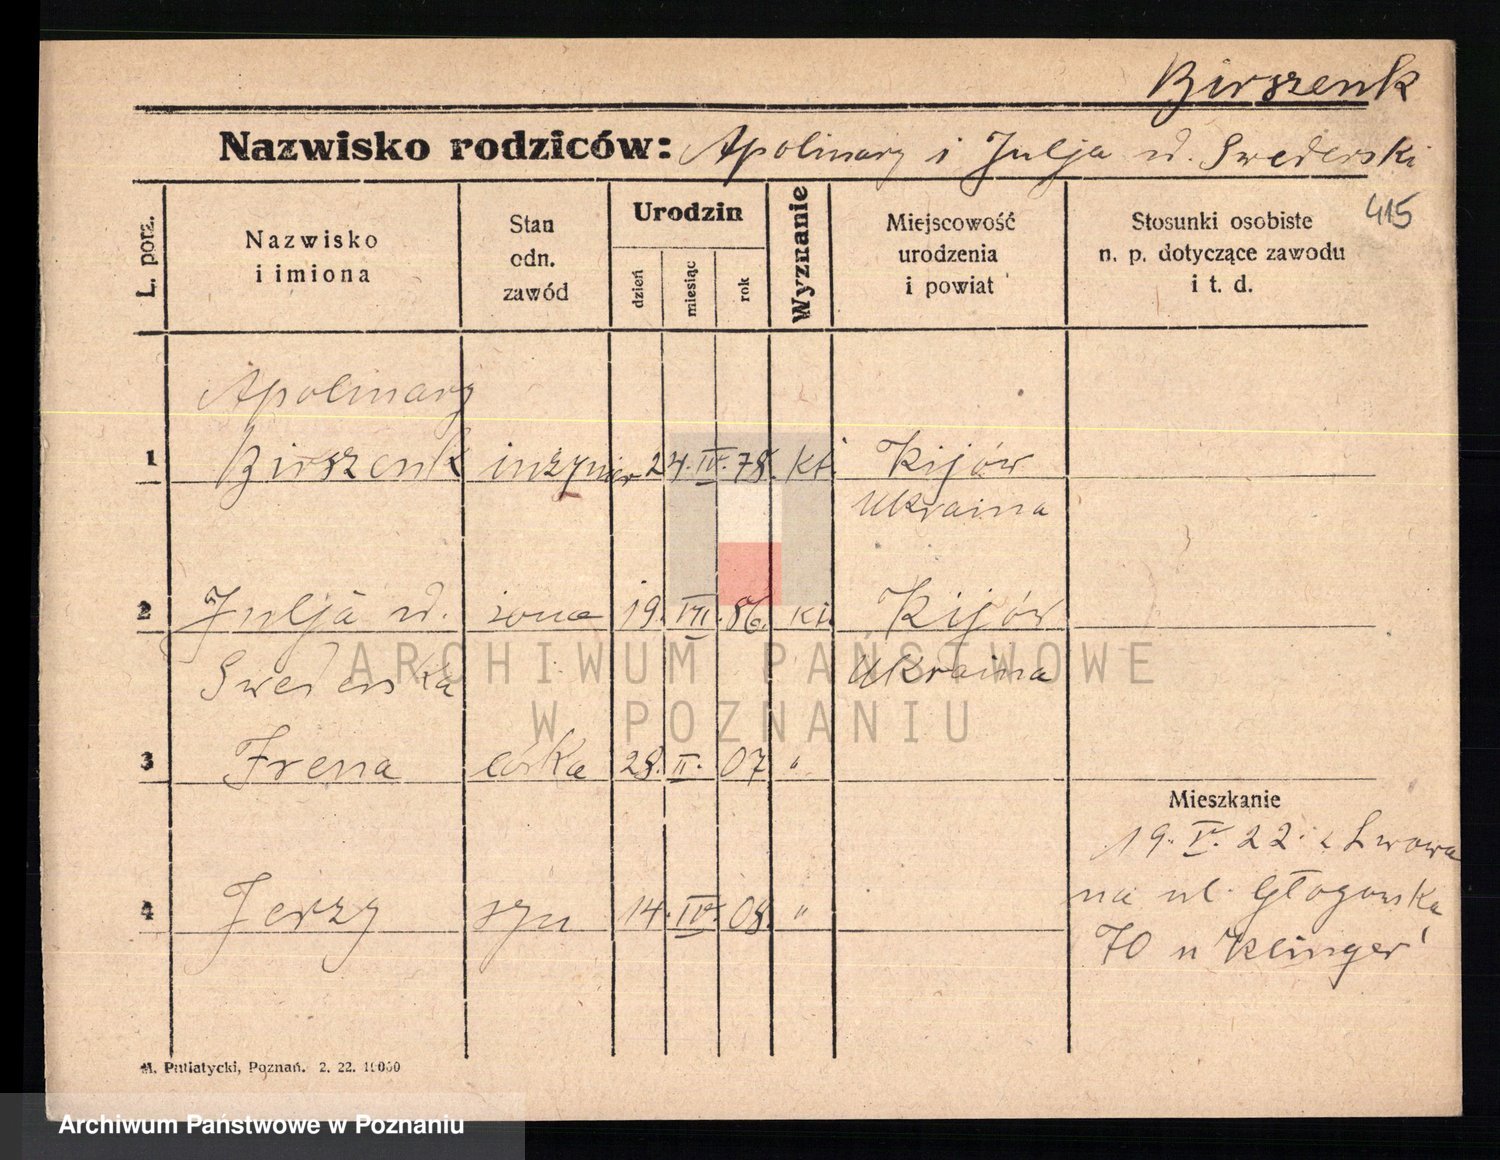 Birszenk
Nazwisko rodziców: Apolinary i Julja u. Swederski
415
L. porz.
Nazwisko
i imiona
Stan
odn.
zawód
Urodzin
dzień
miesiąc
rok
Wyznanie
Miejscowość
urodzenia
i powiat
Stosunki osobiste
n. p. dotyczące zawodu
i t. d.
Apolinary
1 Birszenk inżynier 24. IV. 78. kt. Kijów
Ukraina
2 Julja u. żona 19. VII. 86. kt. Kijów
Swederska Ukraina
3 Irena córka 28. II. 07 "
Mieszkanie
19. V. 22. z Lwowa
na ul. Głogowska
4 Jerzy syn 14. IV. 08. "
70 u Klinger'
M. Putiatycki, Poznań. 2. 22. 10000
ARCHIWUM PAŃSTWOWE
W POZNANIU
Archiwum Państwowe w Poznaniu